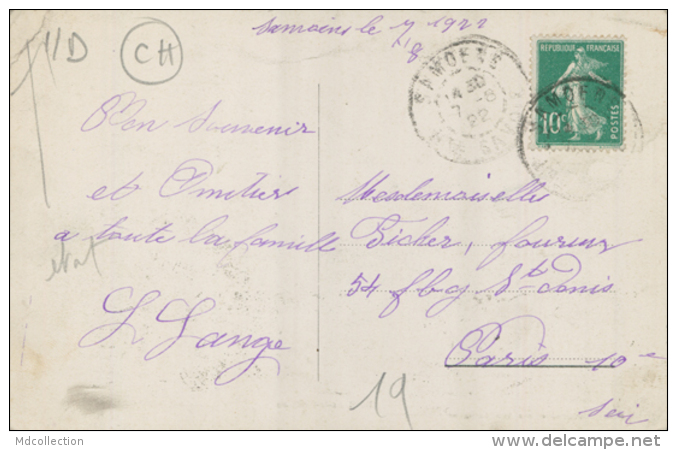 Samoëns le 7 1922
8
11D
CH
SAMOENS
7 -8
22
HTE SAVOIE
REPUBLIQUE FRANÇAISE
10c
POSTES
SAMOENS
Bon Souvenir
et Amitiés
a toute la famille
L Lange
état
Mesdemoiselles
Bicher, foureur
54 fbg St Denis
Paris 10e
Sei
19
Mdcollection
delcampe.net